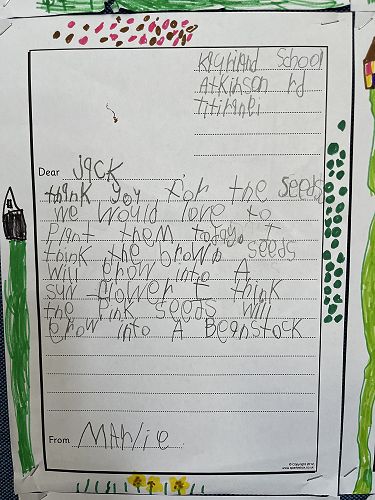 Kauriland School
Atkinson rd
Titirangi
Dear Jack
thank you for the seeds
we would love to
plant them today. I
think the brown seeds
will grow into A
sun flower I think
the pink seeds will
grow into A Beanstock
From Marlie